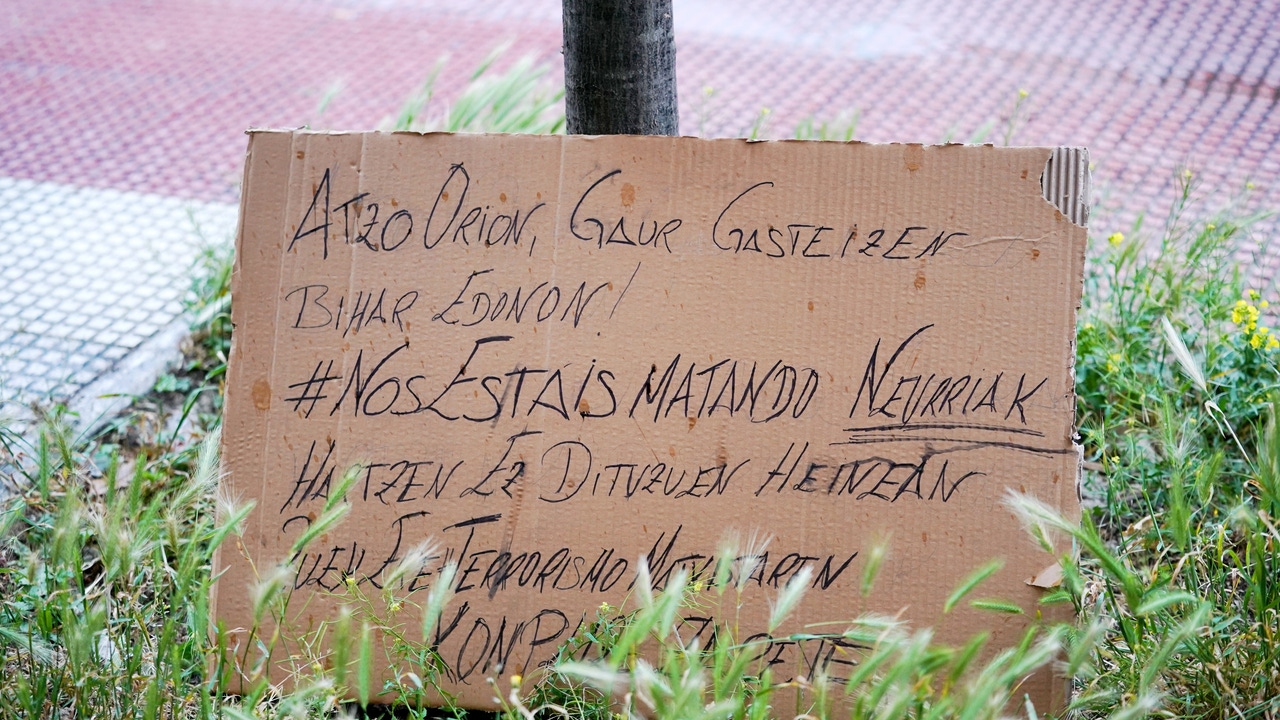 Atzo Orion, Gaur Gasteizen
Bihar Edonon!
#NosEstaisMatando Neurriak
Hartzen Ez Dituzuen Heinean
Zuek Ere Terrorismo Matxistaren